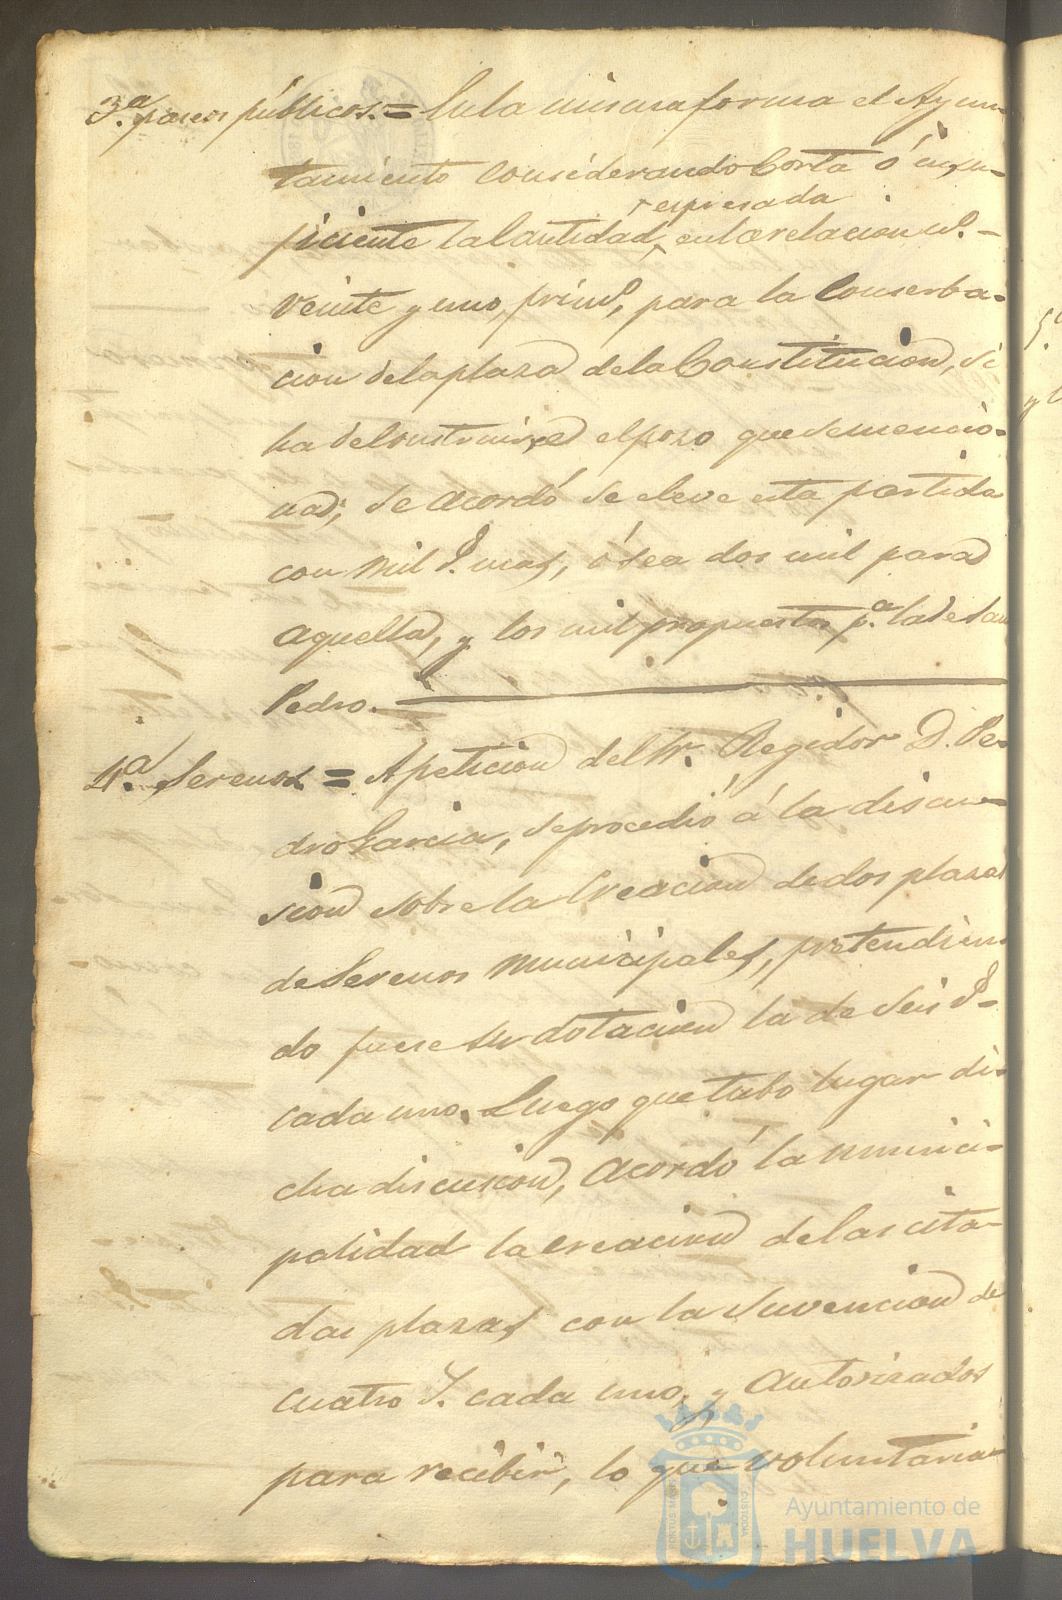 3.ª paseos públicos. = En la misma forma el Ayun-
tamiento considerando Corta ó insu-
ficiente la Cantidad, espresada en la relacion n.º -
veinte y uno, prim.º, para la Conserba-
cion de la plaza de la Constitucion, si
ha de Construirse el pozo que se mencio-
na; se acordó se eleve esta partida
con mil r.s mas, ó sea dos mil para
aquella, y los mil propuestos p.ª la de San
Pedro.
4.ª Serenos = A peticion del Sr. Regidor D. Pe-
dro Garcia, se procedió á la discu-
sion sobre la Creacion de dos plazas
de Serenos municipales, pretendien-
do fuese su dotacion la de seis r.s
cada uno. Luego que tubo lugar di-
cha discusion, acordó la munici-
palidad la creacion de las cita-
das plazas con la suvencion de
cuatro r.s cada uno, y autorizados
para recibir, lo que voluntaria-
Ayuntamiento de
HUELVA